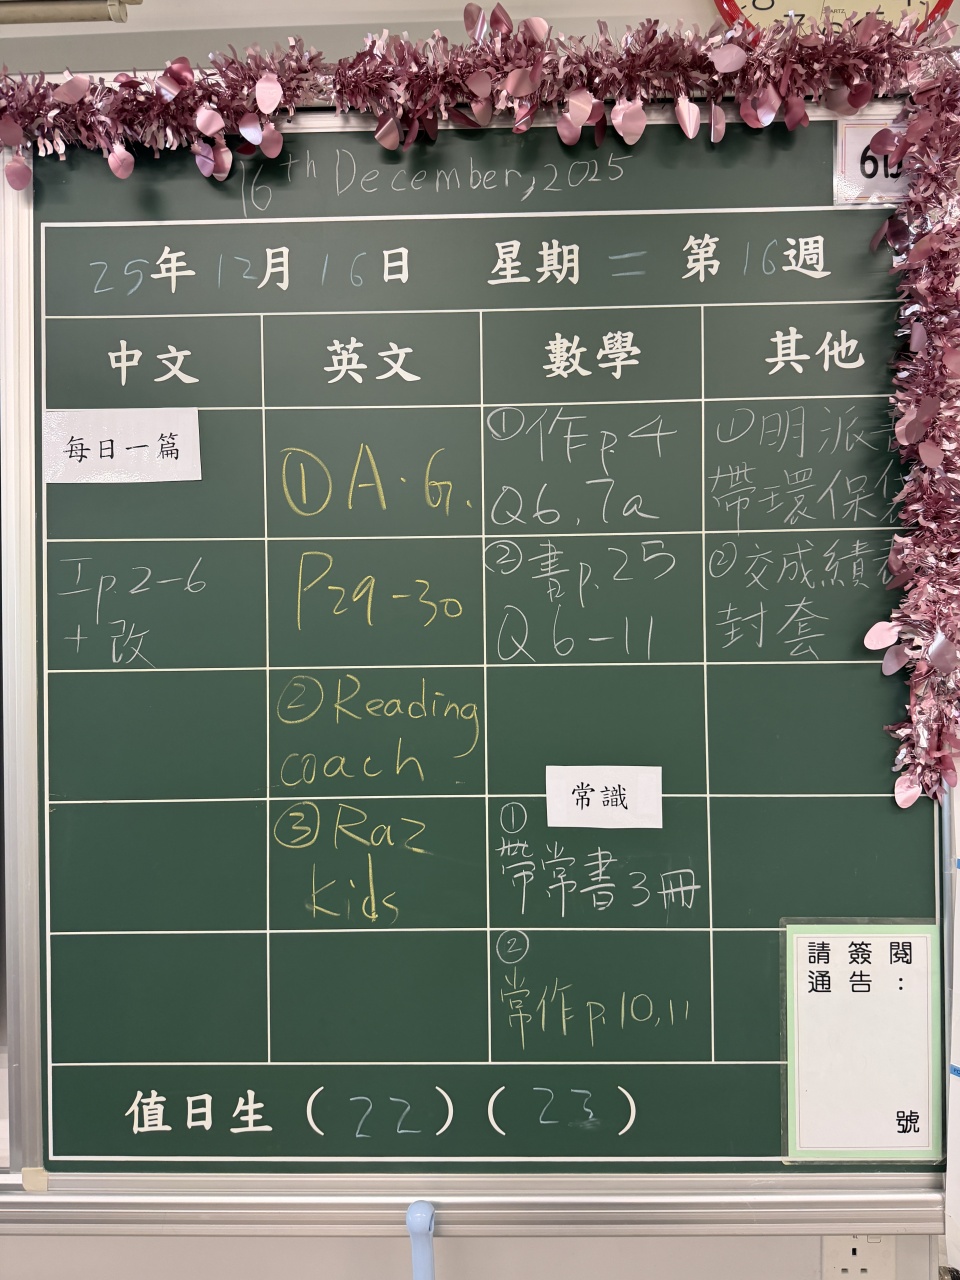 16th December, 2025
25年12月16日 星期二 第16週
中文
英文
數學
其他
每日一篇
工p.2-6
+改
①A.G.
P29-30
②Reading
coach
③Raz
kids
①作p.4
Q6,7a
②書p.25
Q6-11
常識
①
帶常書3冊
②
常作p.10,11
①明派
帶環保袋
②交成績表
封套
請簽閱
通告：
號
值日生（22）（23）